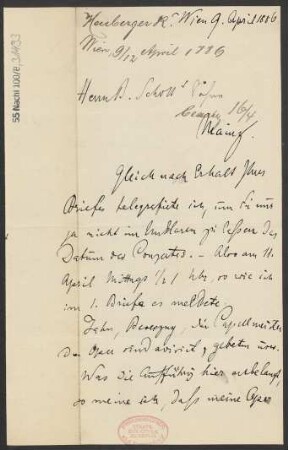 55 Nachl 100/B,
Heuberger R. Wien 9. April 1886
Wien, 9/IV April 1886
Herrn B. Schott's Söhne
16/4
Mainz.
Gleich nach Erhalt Ihres
Briefes telegrafirte ich, um Sie
ja nicht im Unklaren zu lassen das
Datum des Conzertes. – Also am 11.
April Mittags 1/2 1 Uhr, so wie ich
im 1. Briefe es meldete.
Jahn, die Capellmeister
der Oper sind avisirt, gebeten
Was die Aufführung hier anbelangt,
so meine ich, dass meine Oper